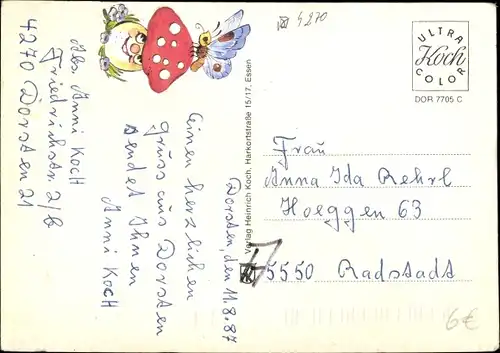 Abs. Anni Koch
Friedrichstr. 2/b
4270 Dorsten 21
Dorsten, den 11.8.87
Einen herzlichen
Gruss aus Dorsten
sendet Ihnen
Anni Koch
Verlag Heinrich Koch, Harkortstraße 15/17, Essen
4270
ULTRA
Koch
COLOR
DOR 7705 C
Frau
Anna Ida Rehrl
Hoeggen 63
5550 Radstadt
6€